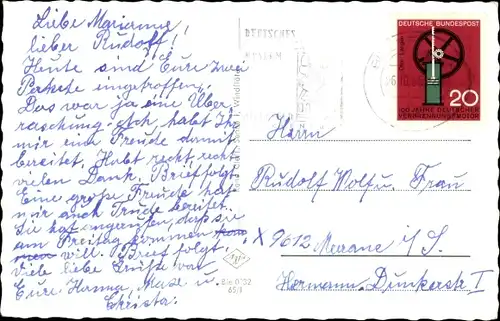 Liebe Marianne,
lieber Rudolf!
Heute sind Eure zwei
Pakete eingetroffen,
Das war ja eine Über
raschung. Ach habt Ihr
mir eine Freude damit
bereitet. Habt recht, recht
vielen Dank. Brief folgt
Eine große Freude hat
mir auch Trude bereitet.
Sie hat angerufen, daß sie
am Freitag kommen
will. Brief folgt.
Viele liebe Grüße von
Eure Hanna, Maxe u.
Christa.
DEUTSCHES
MUSEUM
DEUTSCHE BUNDESPOST
20
100 JAHRE DEUTSCHER
VERBRENNUNGSMOTOR
Herrn
Rudolf Wolf u. Frau
X 9612 Meerane i/S.
Hermann-Dunkerstr. 1
Bin 0132
65/1